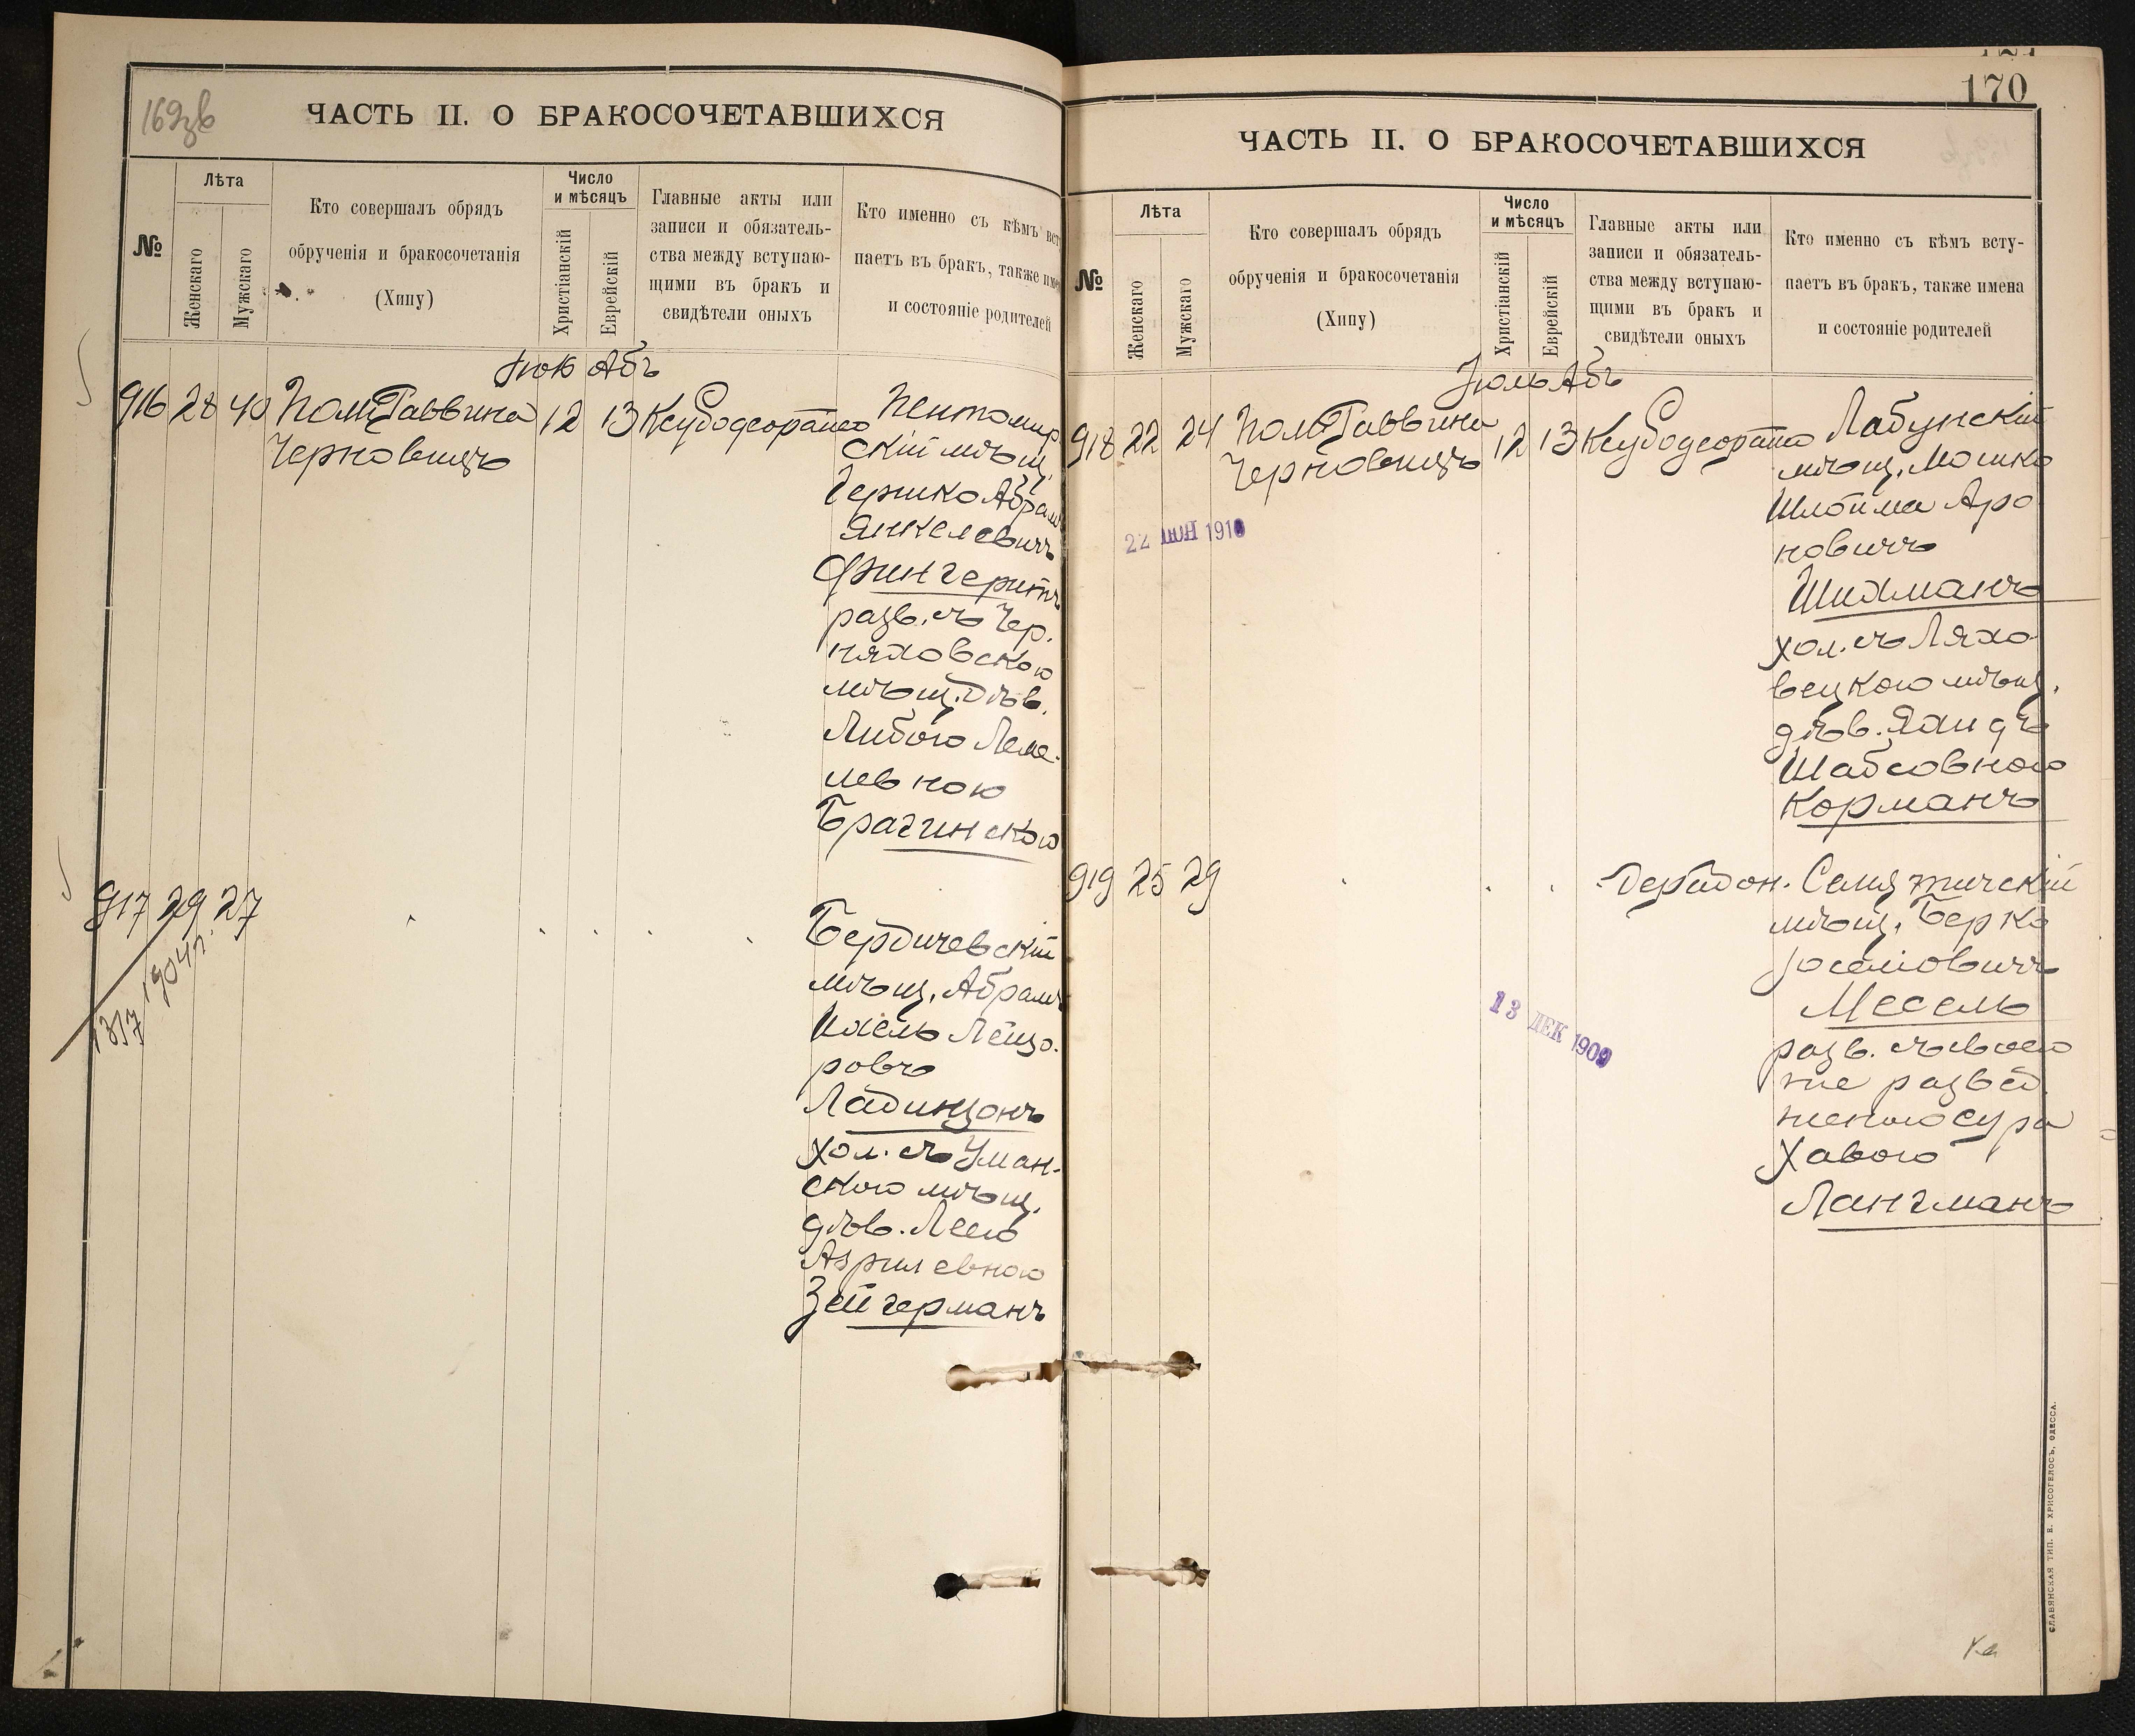 169об
ЧАСТЬ II. О БРАКОСОЧЕТАВШИХСЯ
№
Лѣта
Женскаго
Мужскаго
Кто совершалъ обрядъ
обрученія и бракосочетанія
(Хипу)
Число
и мѣсяцъ
Христіанскій
Еврейскій
Главные акты или
записи и обязатель-
ства между вступаю-
щими въ бракъ и
свидѣтели оныхъ
Кто именно съ кѣмъ вст
паетъ въ бракъ, также име
и состояніе родителей
Абъ
916 28 40 Пом. Раввина 12 13
Черновицъ
скій мѣщ.
Гершко Абрам
Янкелевичъ
Фингеритъ
разв. съ Чер.
няховскою
мѣщ. дѣв.
Либою Леме-
левною
Брагинскою
917 29 27
1317 1904 г.
Бердичевскій
мѣщ. Абрамъ
Ихель Лейзо-
ровъ
Ладинзонъ
хол. съ Уман-
скою мѣщ.
дѣв. Леею
Азрилевною
Зейгерманъ
170
ЧАСТЬ II. О БРАКОСОЧЕТАВШИХСЯ
№
Лѣта
Женскаго
Мужскаго
Кто совершалъ обрядъ
обрученія и бракосочетанія
(Хипу)
Число
и мѣсяцъ
Христіанскій
Еврейскій
Главные акты или
записи и обязатель-
ства между вступаю-
щими въ бракъ и
свидѣтели оныхъ
Кто именно съ кѣмъ всту-
паетъ въ бракъ, также имена
и состояніе родителей
Іюль Абъ
918 22 24 Пом. Раввина 12 13 Лабунскій
Черновицъ
мѣщ. Мошко
Шлойма Аро
новичъ
Шихманъ
хол. съ Ляхо
вецкою мѣщ.
дѣв.
Шабсовною
Корманъ
22 ІЮН 1910
919 25 29
мѣщ. Берко
Іоселіовичъ
Месель
разв. съ своею
же развед
женою Сура
Хавою
Лангманъ
13 ДЕК 1909
СЛАВЯНСКАЯ ТИП. Е. ХРИСОГЕЛОСЪ, ОДЕССА.